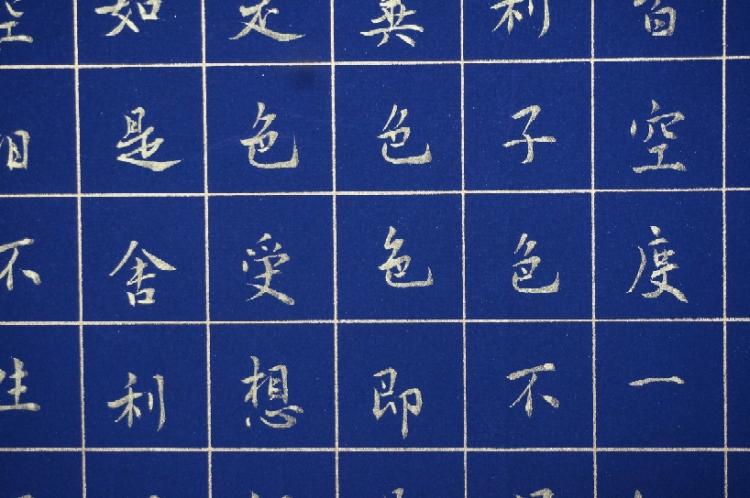 皆空度一
利子色不
異色色即
是色受想
如是舍利
空相不生